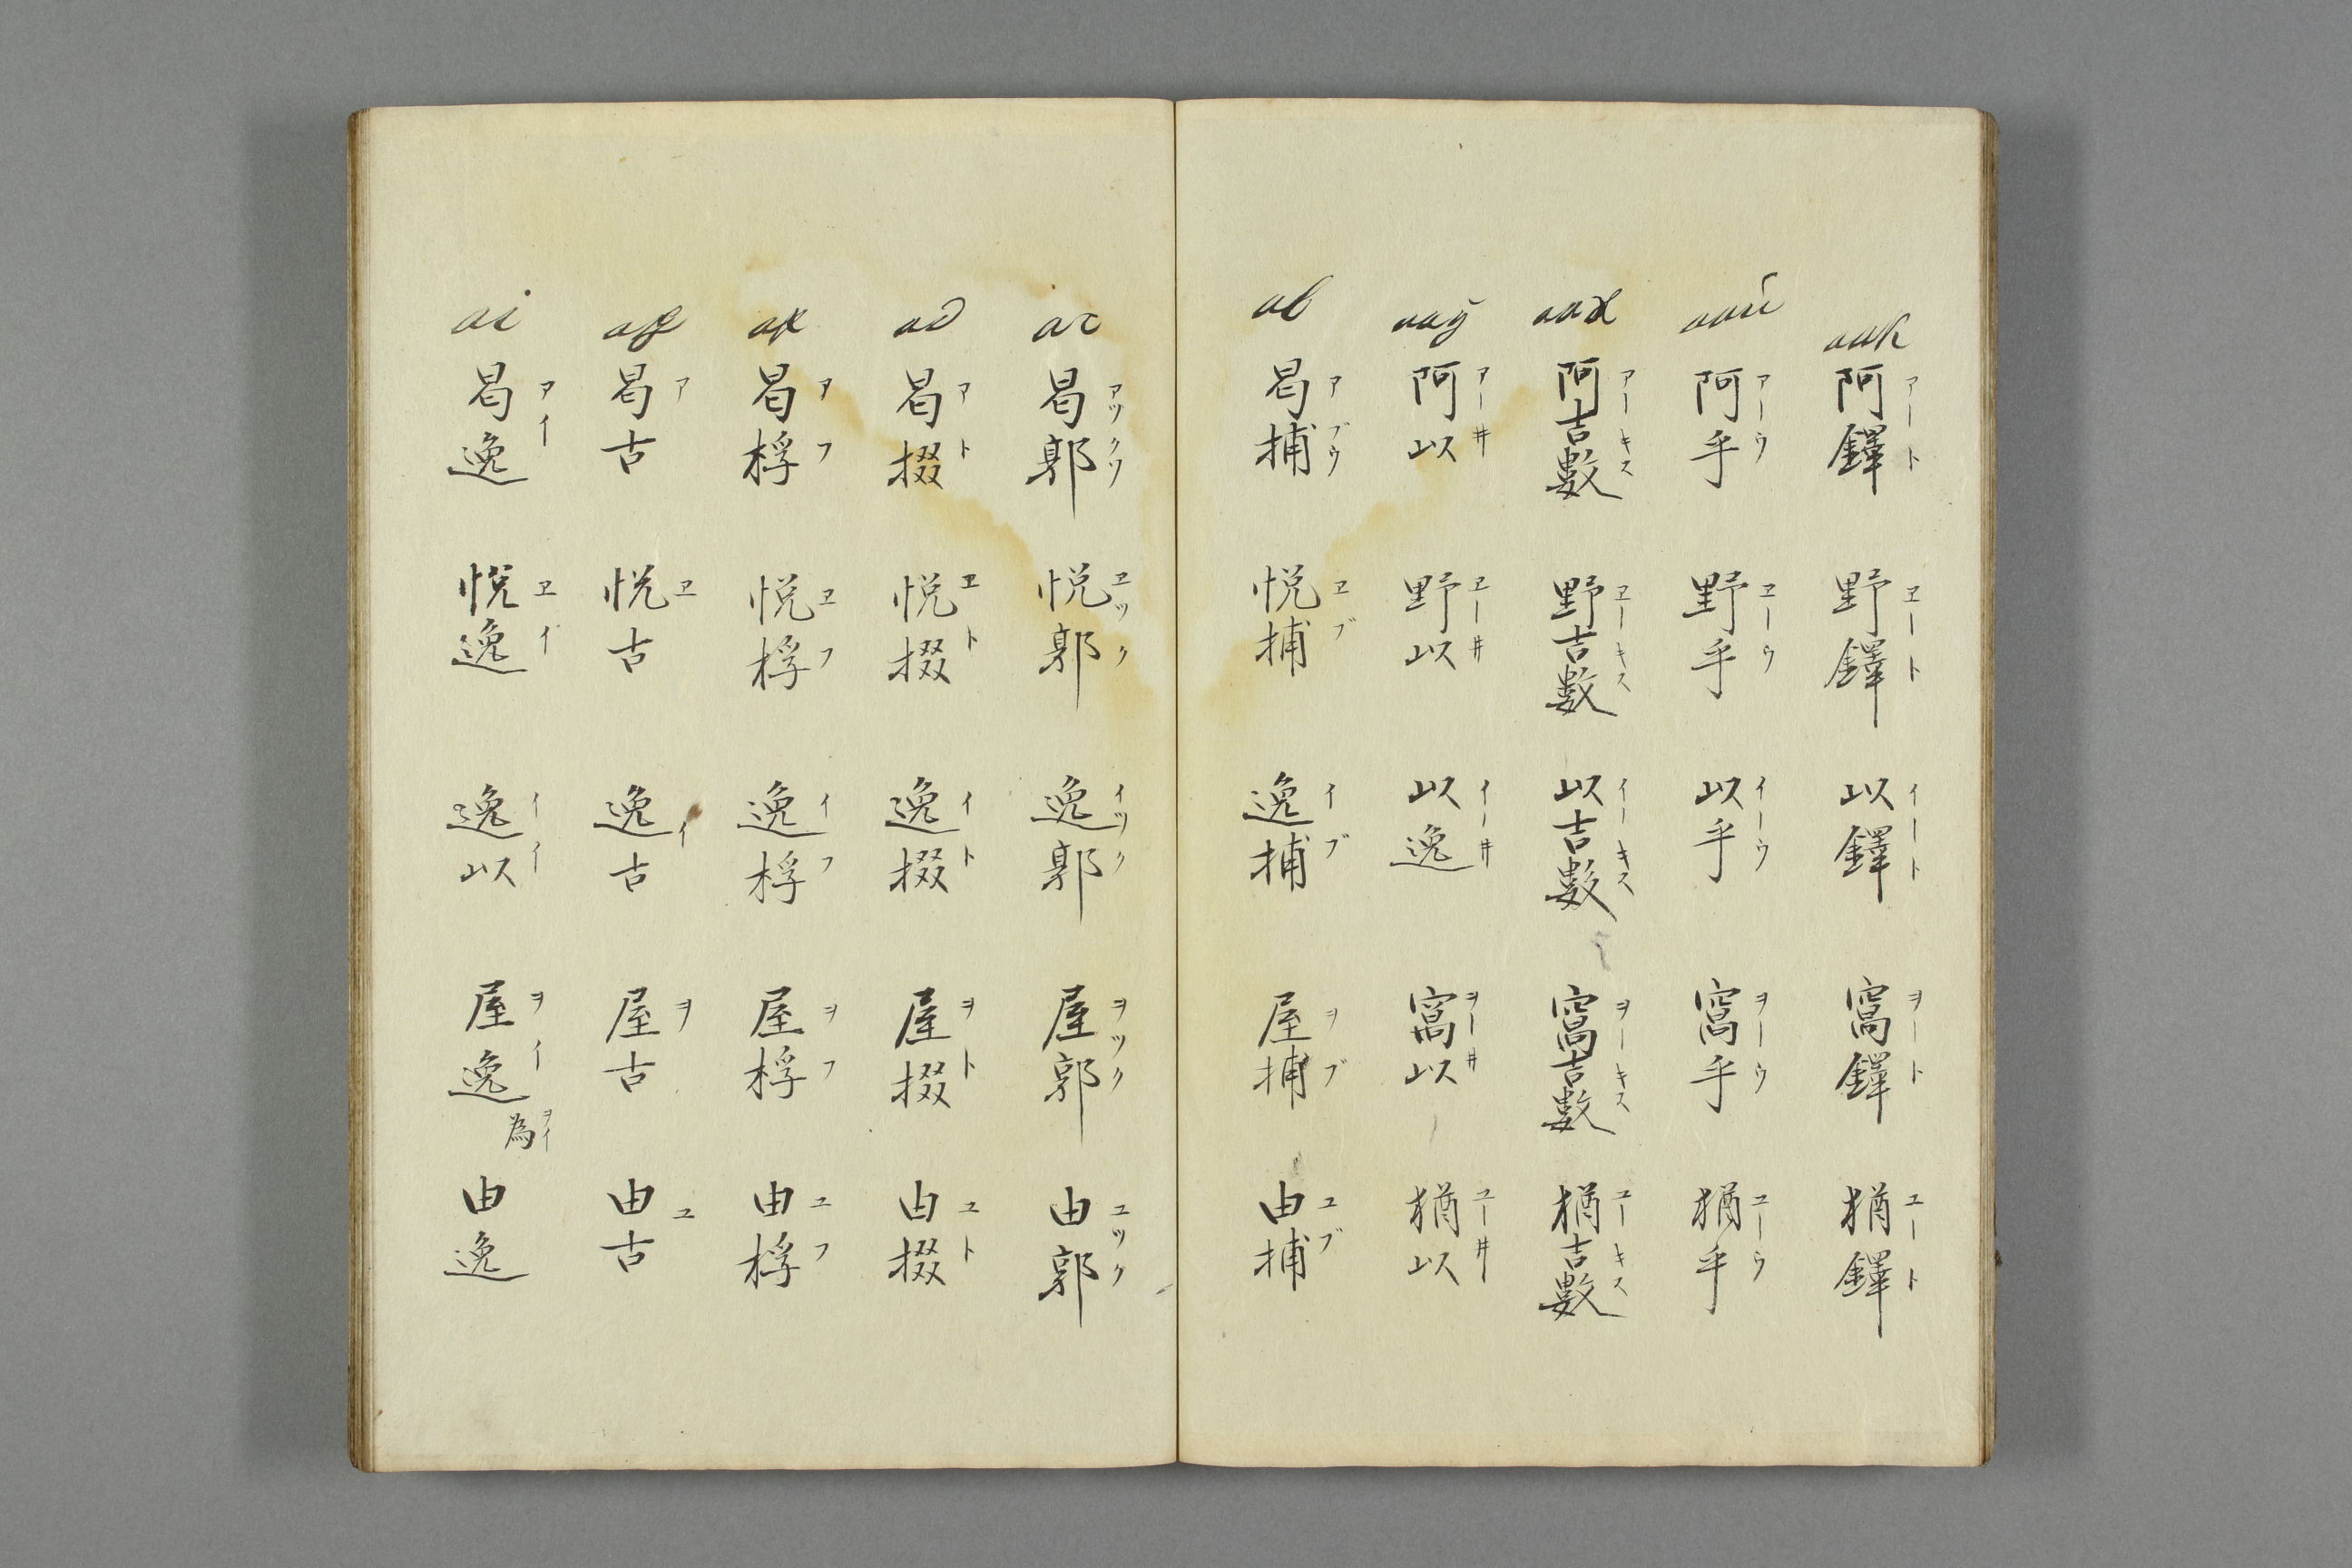 阿鐸 野鐸 以鐸 窩鐸 猶鐸
アート ヱート イート ヲート ユート
aaú 阿乎 野乎 以乎 窩乎 猶乎
アーウ ヱーウ イーウ ヲーウ ユーウ
aax 阿吉數 野吉数 以吉數 窩吉數 猶吉數
アーキス ヱーキス イーキス ヲーキス ユーキス
aaÿ 阿以 野以 以逸 窩以 猶以
アーヰ ヱーヰ イーヰ ヲーヰ ユーヰ
ab 曷捕 悦捕 逸捕 屋捕 由捕
アブウ ヱブ イブ ヲブ ユブ
ac 曷郭 悦郭 逸郭 屋郭 由郭
アックウ ヱツク イツク ヲツク ユツク
ad 曷掇 悦掇 逸掇 屋掇 由掇
アト ヱト イト ヲト ユト
af 曷桴 悦桴 逸桴 屋桴 由桴
アフ ヱフ イフ ヲフ ユフ
ag 曷古 悦古 逸古 屋古 由古
ア ヱ イ ヲ ユ
ai 曷逸 悦逸 逸以 屋逸 為 由逸
アイ ヱイ イイ ヲイ ヲイ